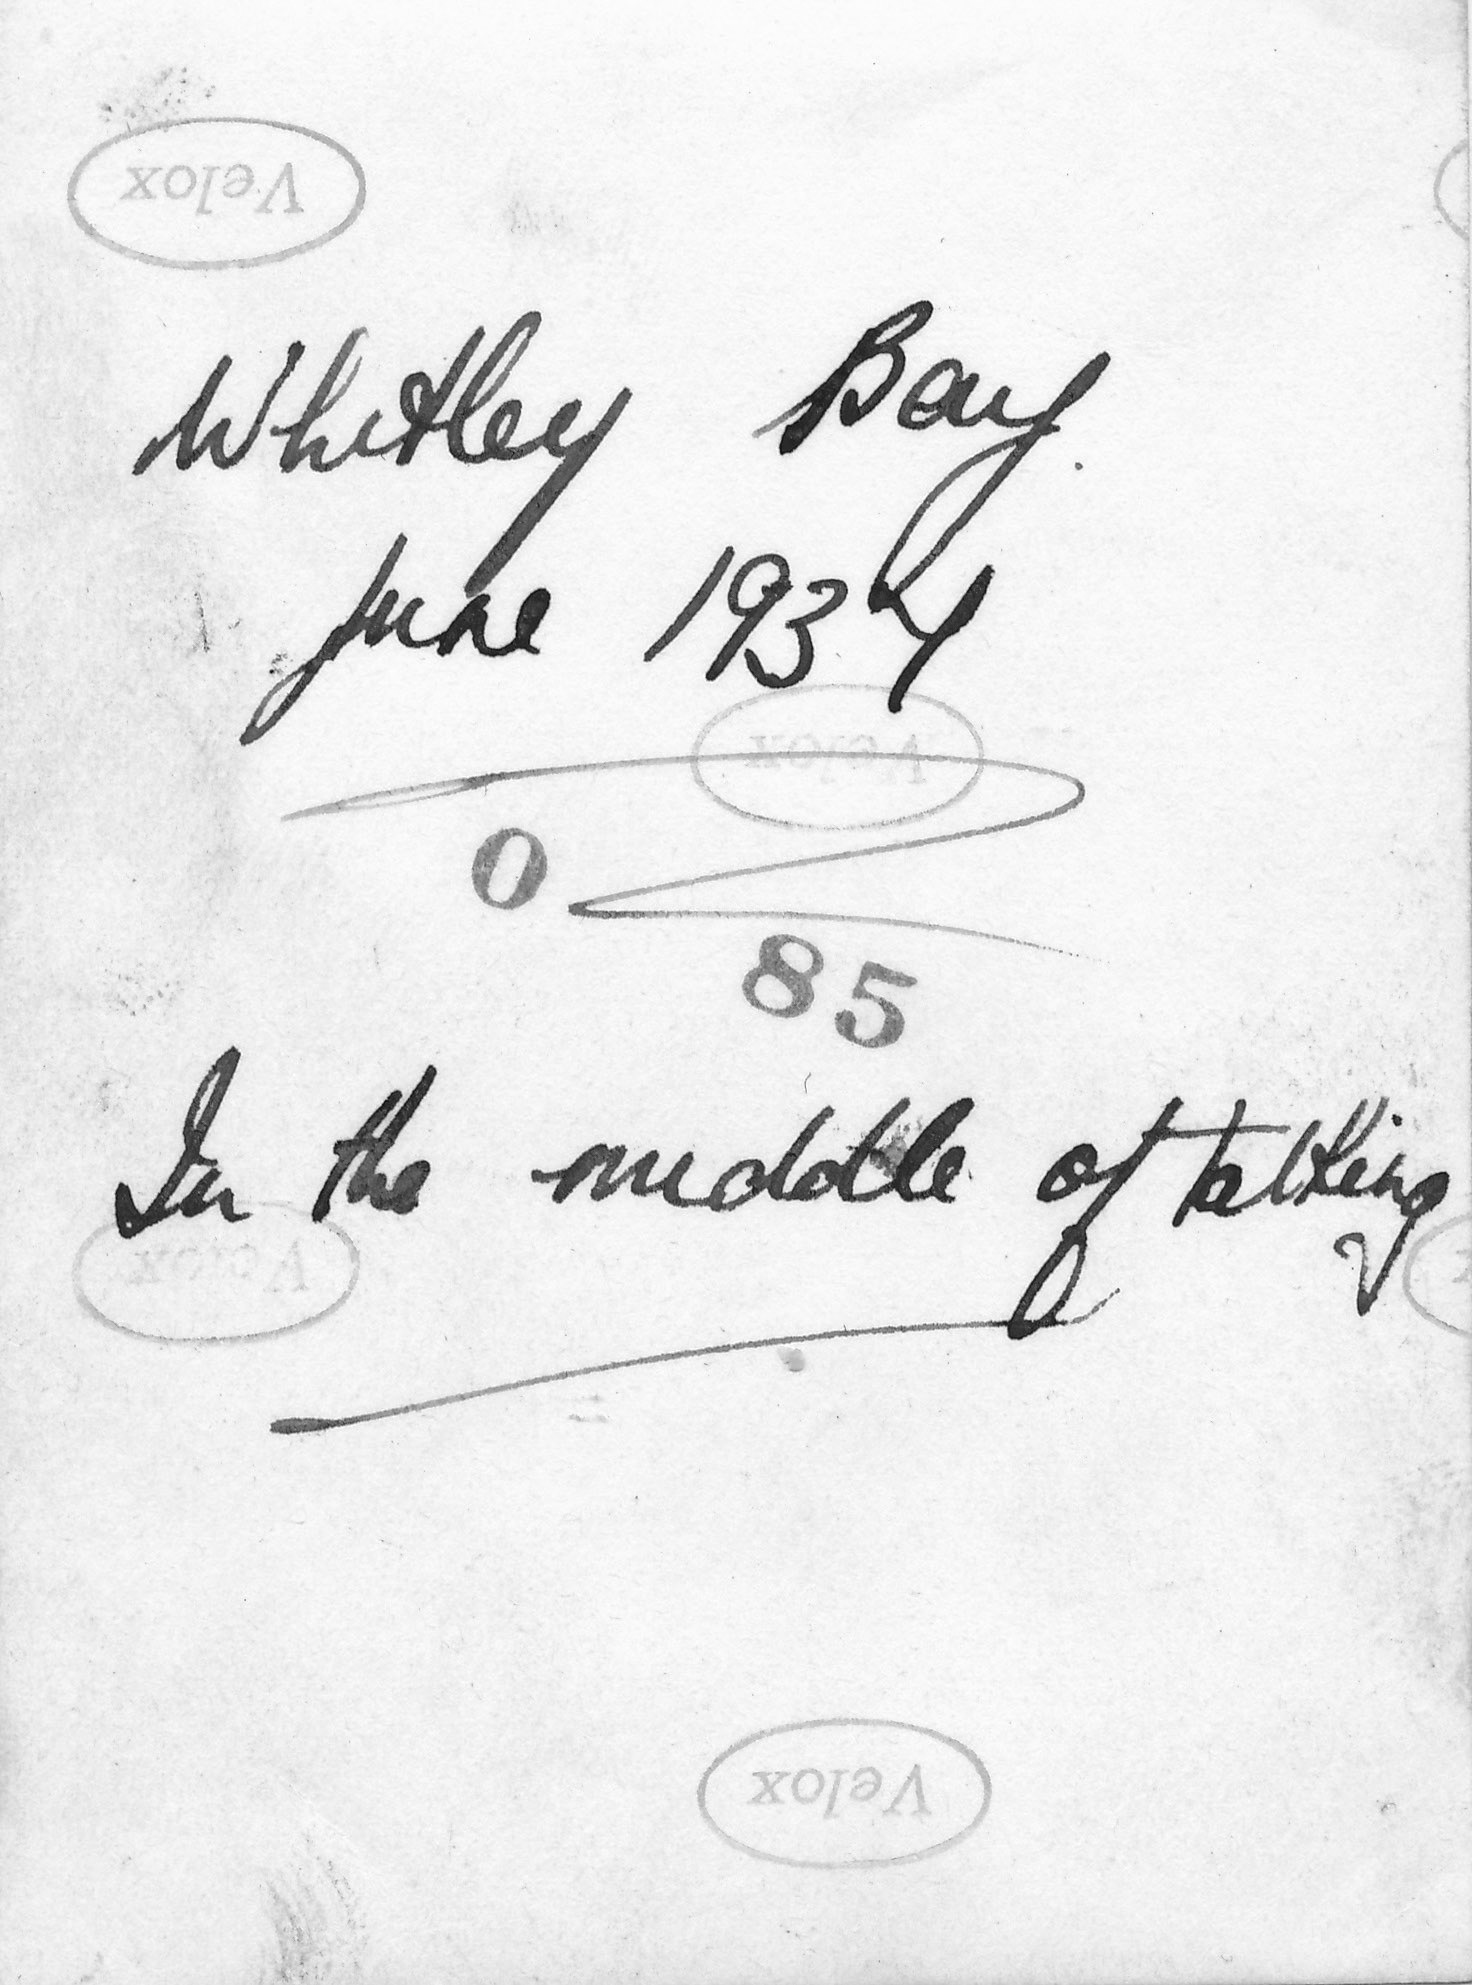 Velox
Whitley Bay.
June 1934
Velox
0
85
In the middle of talking
Velox
Velox